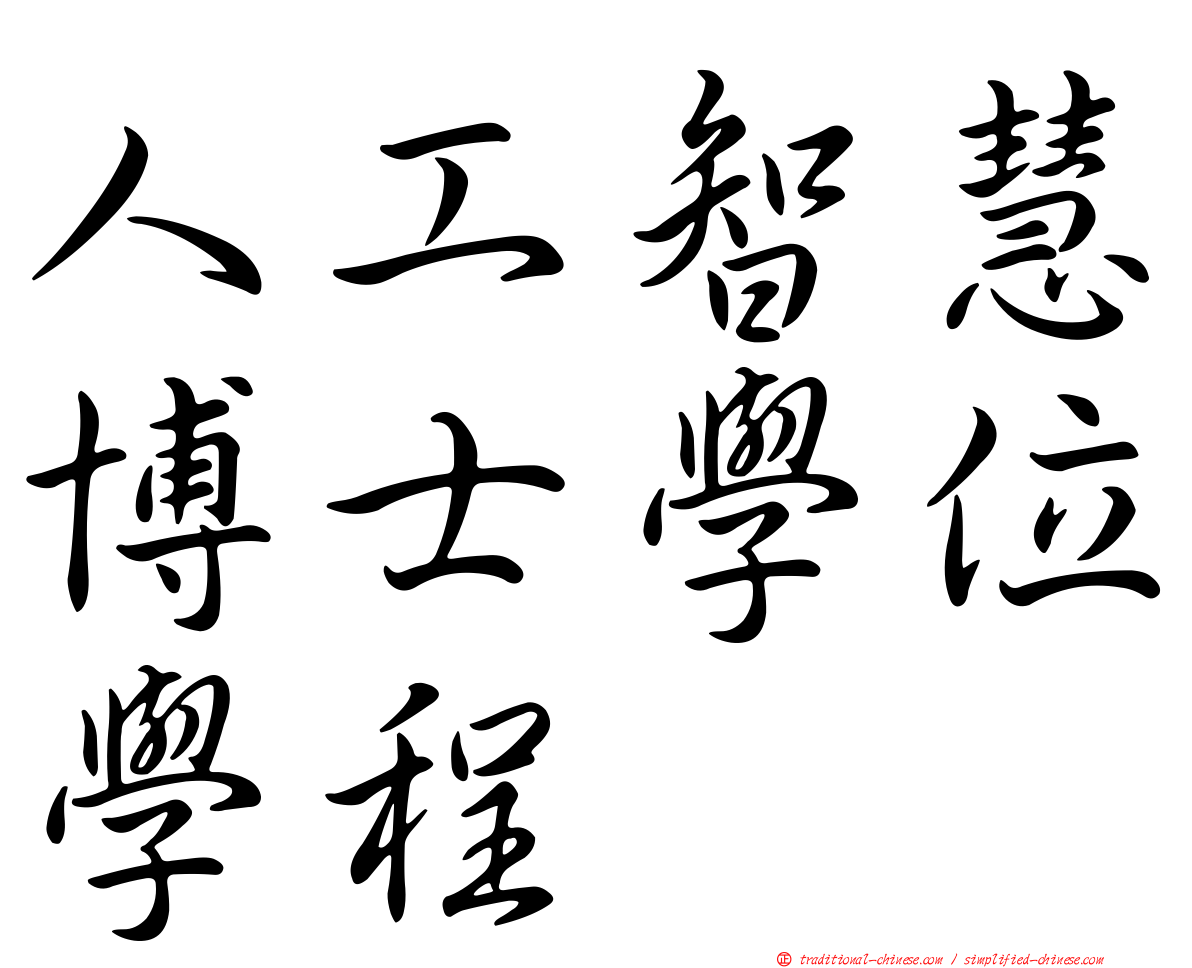 人工智慧
博士學位
學程
㊣ traditional-chinese.com / simplified-chinese.com